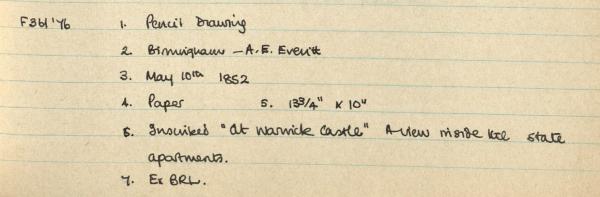 F361'76 1. Pencil Drawing
2. Birmingham - A.E. Everitt
3. May 10th 1852
4. Paper 5. 13 3/4" x 10"
6. Inscribed "At Warwick Castle" A view inside the state
apartments.
7. Ex BRL.